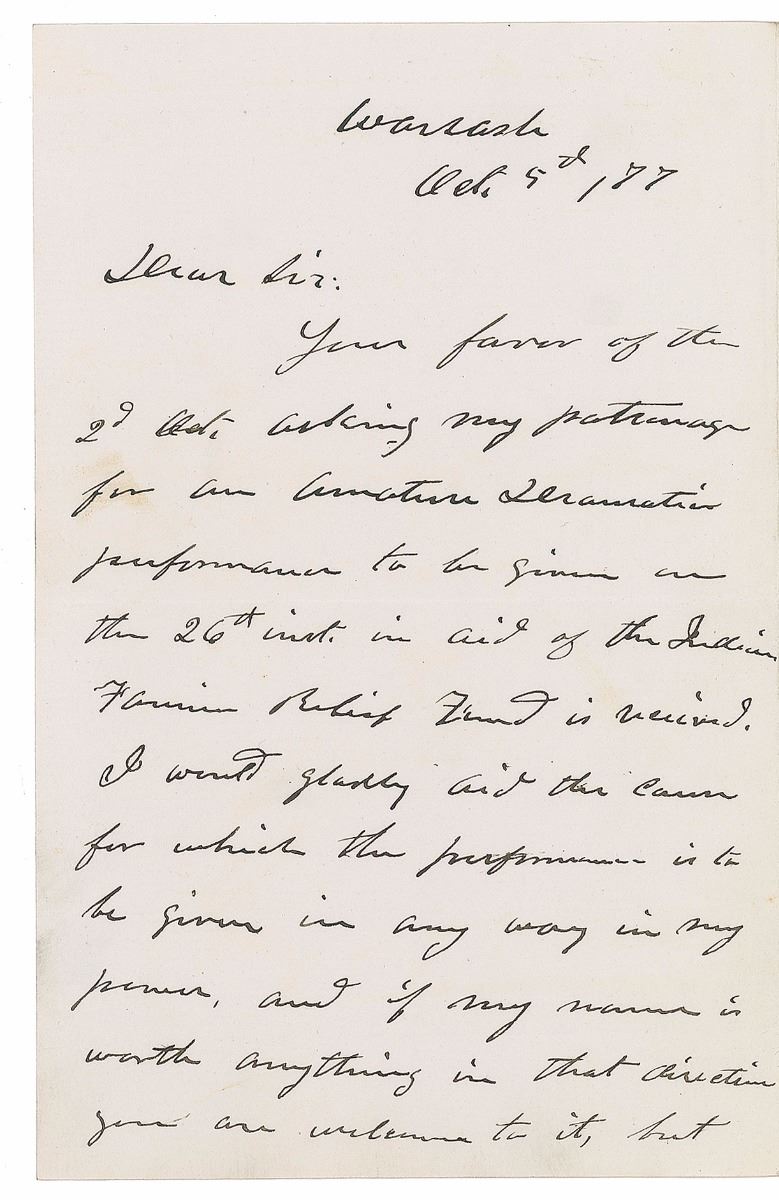 Warsash
Oct. 5th, /77
Dear Sir:
Your favor of the
2d Oct. asking my patronage
for an Amature Dramatic
performance to be given on
the 26th inst. in aid of the Indian
Famine Relief Fund is recieved.
I would gladly aid the cause
for which the performance is to
be given in any way in my
power, and if my name is
worth anything in that direction
you are welcome to it, but